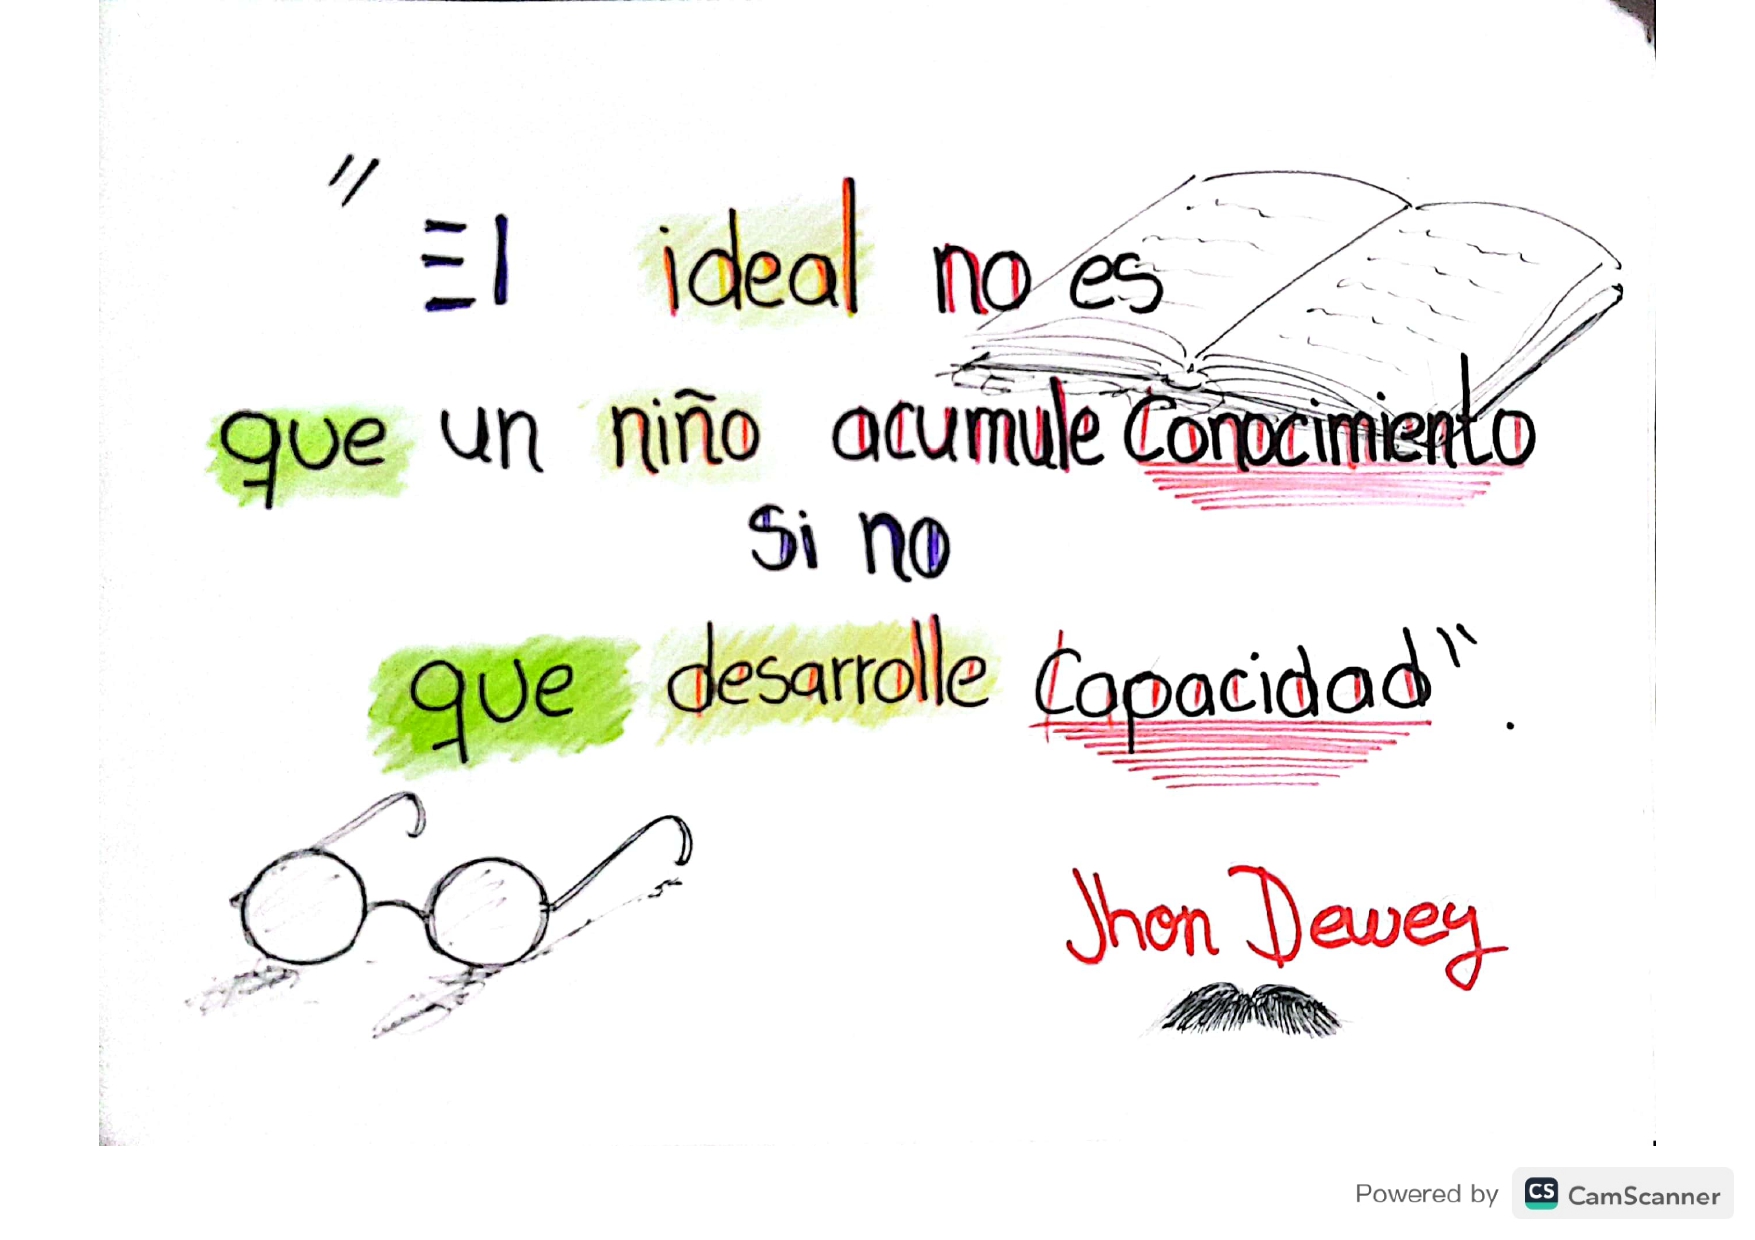 "El ideal no es
que un niño acumule Conocimiento
si no
que desarrolle Capacidad".
Jhon Dewey
Powered by CS CamScanner